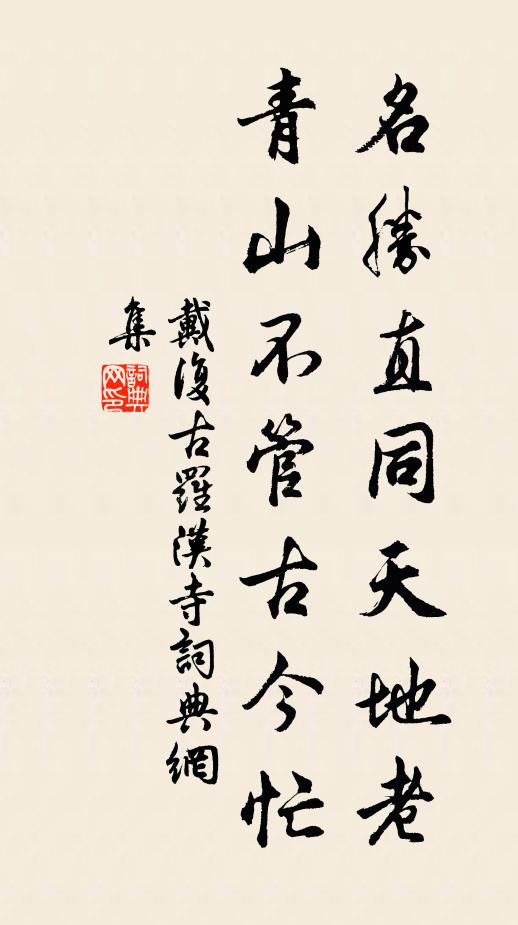 名勝直同天地老
青山不管古今忙
戴復古羅漢寺詞典網
集
詞典
网印